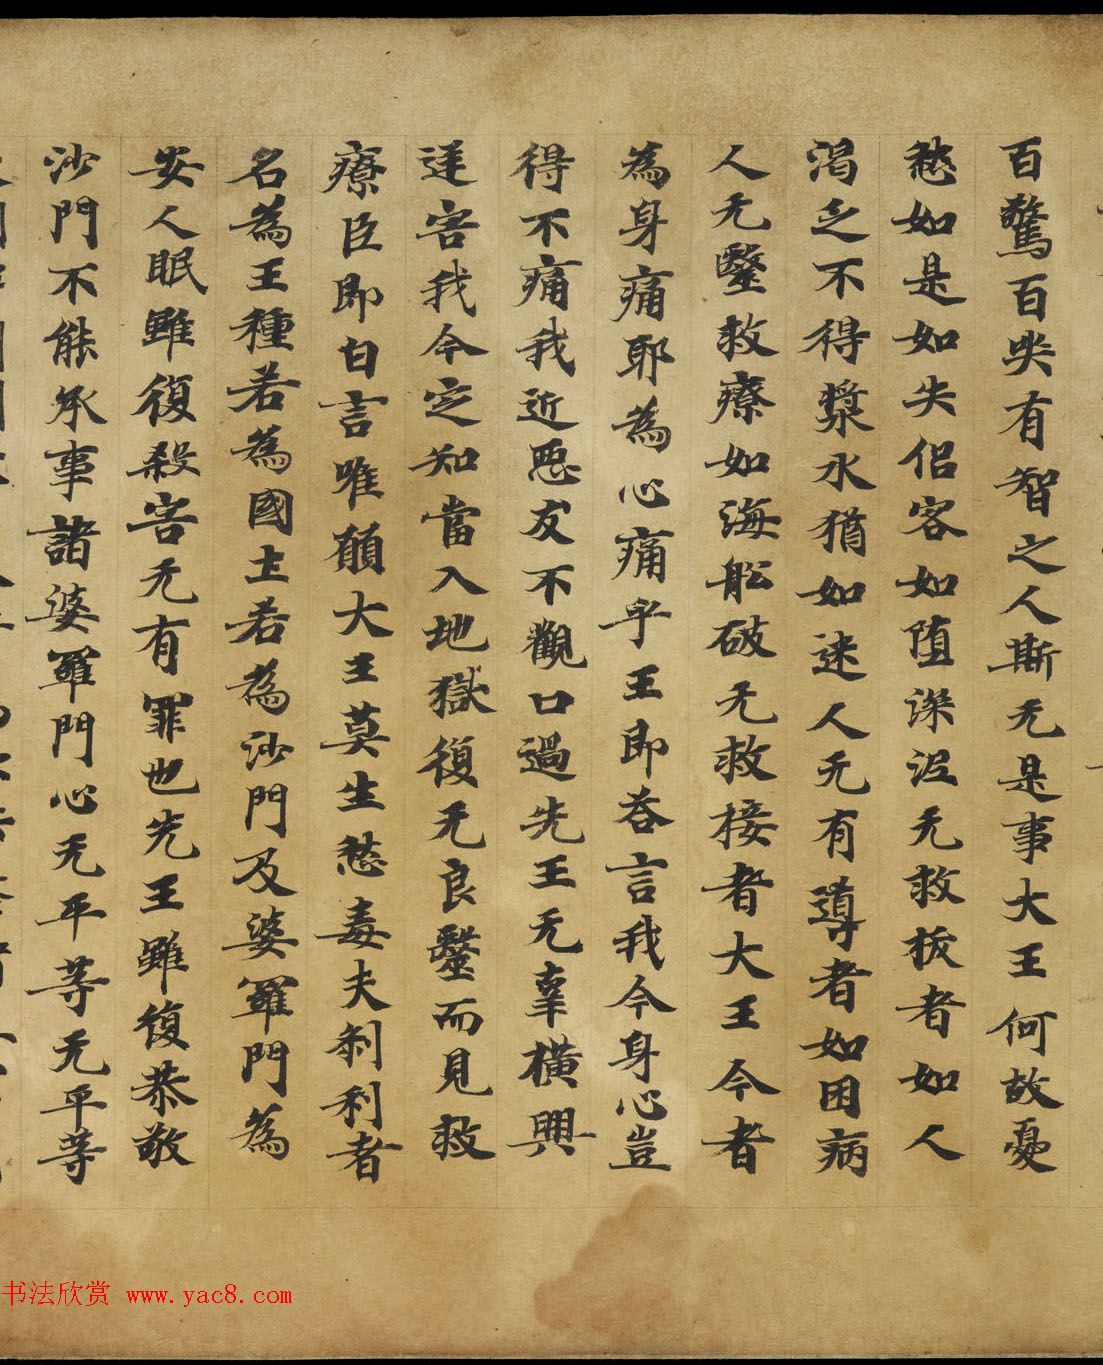 百驚百哭有智之人斯无是事大王何故憂
愁如是如失侶客如堕深泥无救拔者如人
渴乏不得漿水猶如迷人无有導者如困病
人无毉救療如海舩破无救接者大王今者
為身痛耶為心痛乎王即荅言我今身心豈
得不痛我近惡友不觀口過先王无辜横興
逆害我今定知當入地獄復无良毉而見救
療臣即白言唯願大王莫生愁毒夫刹利者
名為王種若為國土若為沙門及婆羅門為
安人民雖復殺害无有罪也先王雖復恭敬
沙門不能承事諸婆羅門心无平等无平等
书法欣赏 www.yac8.com